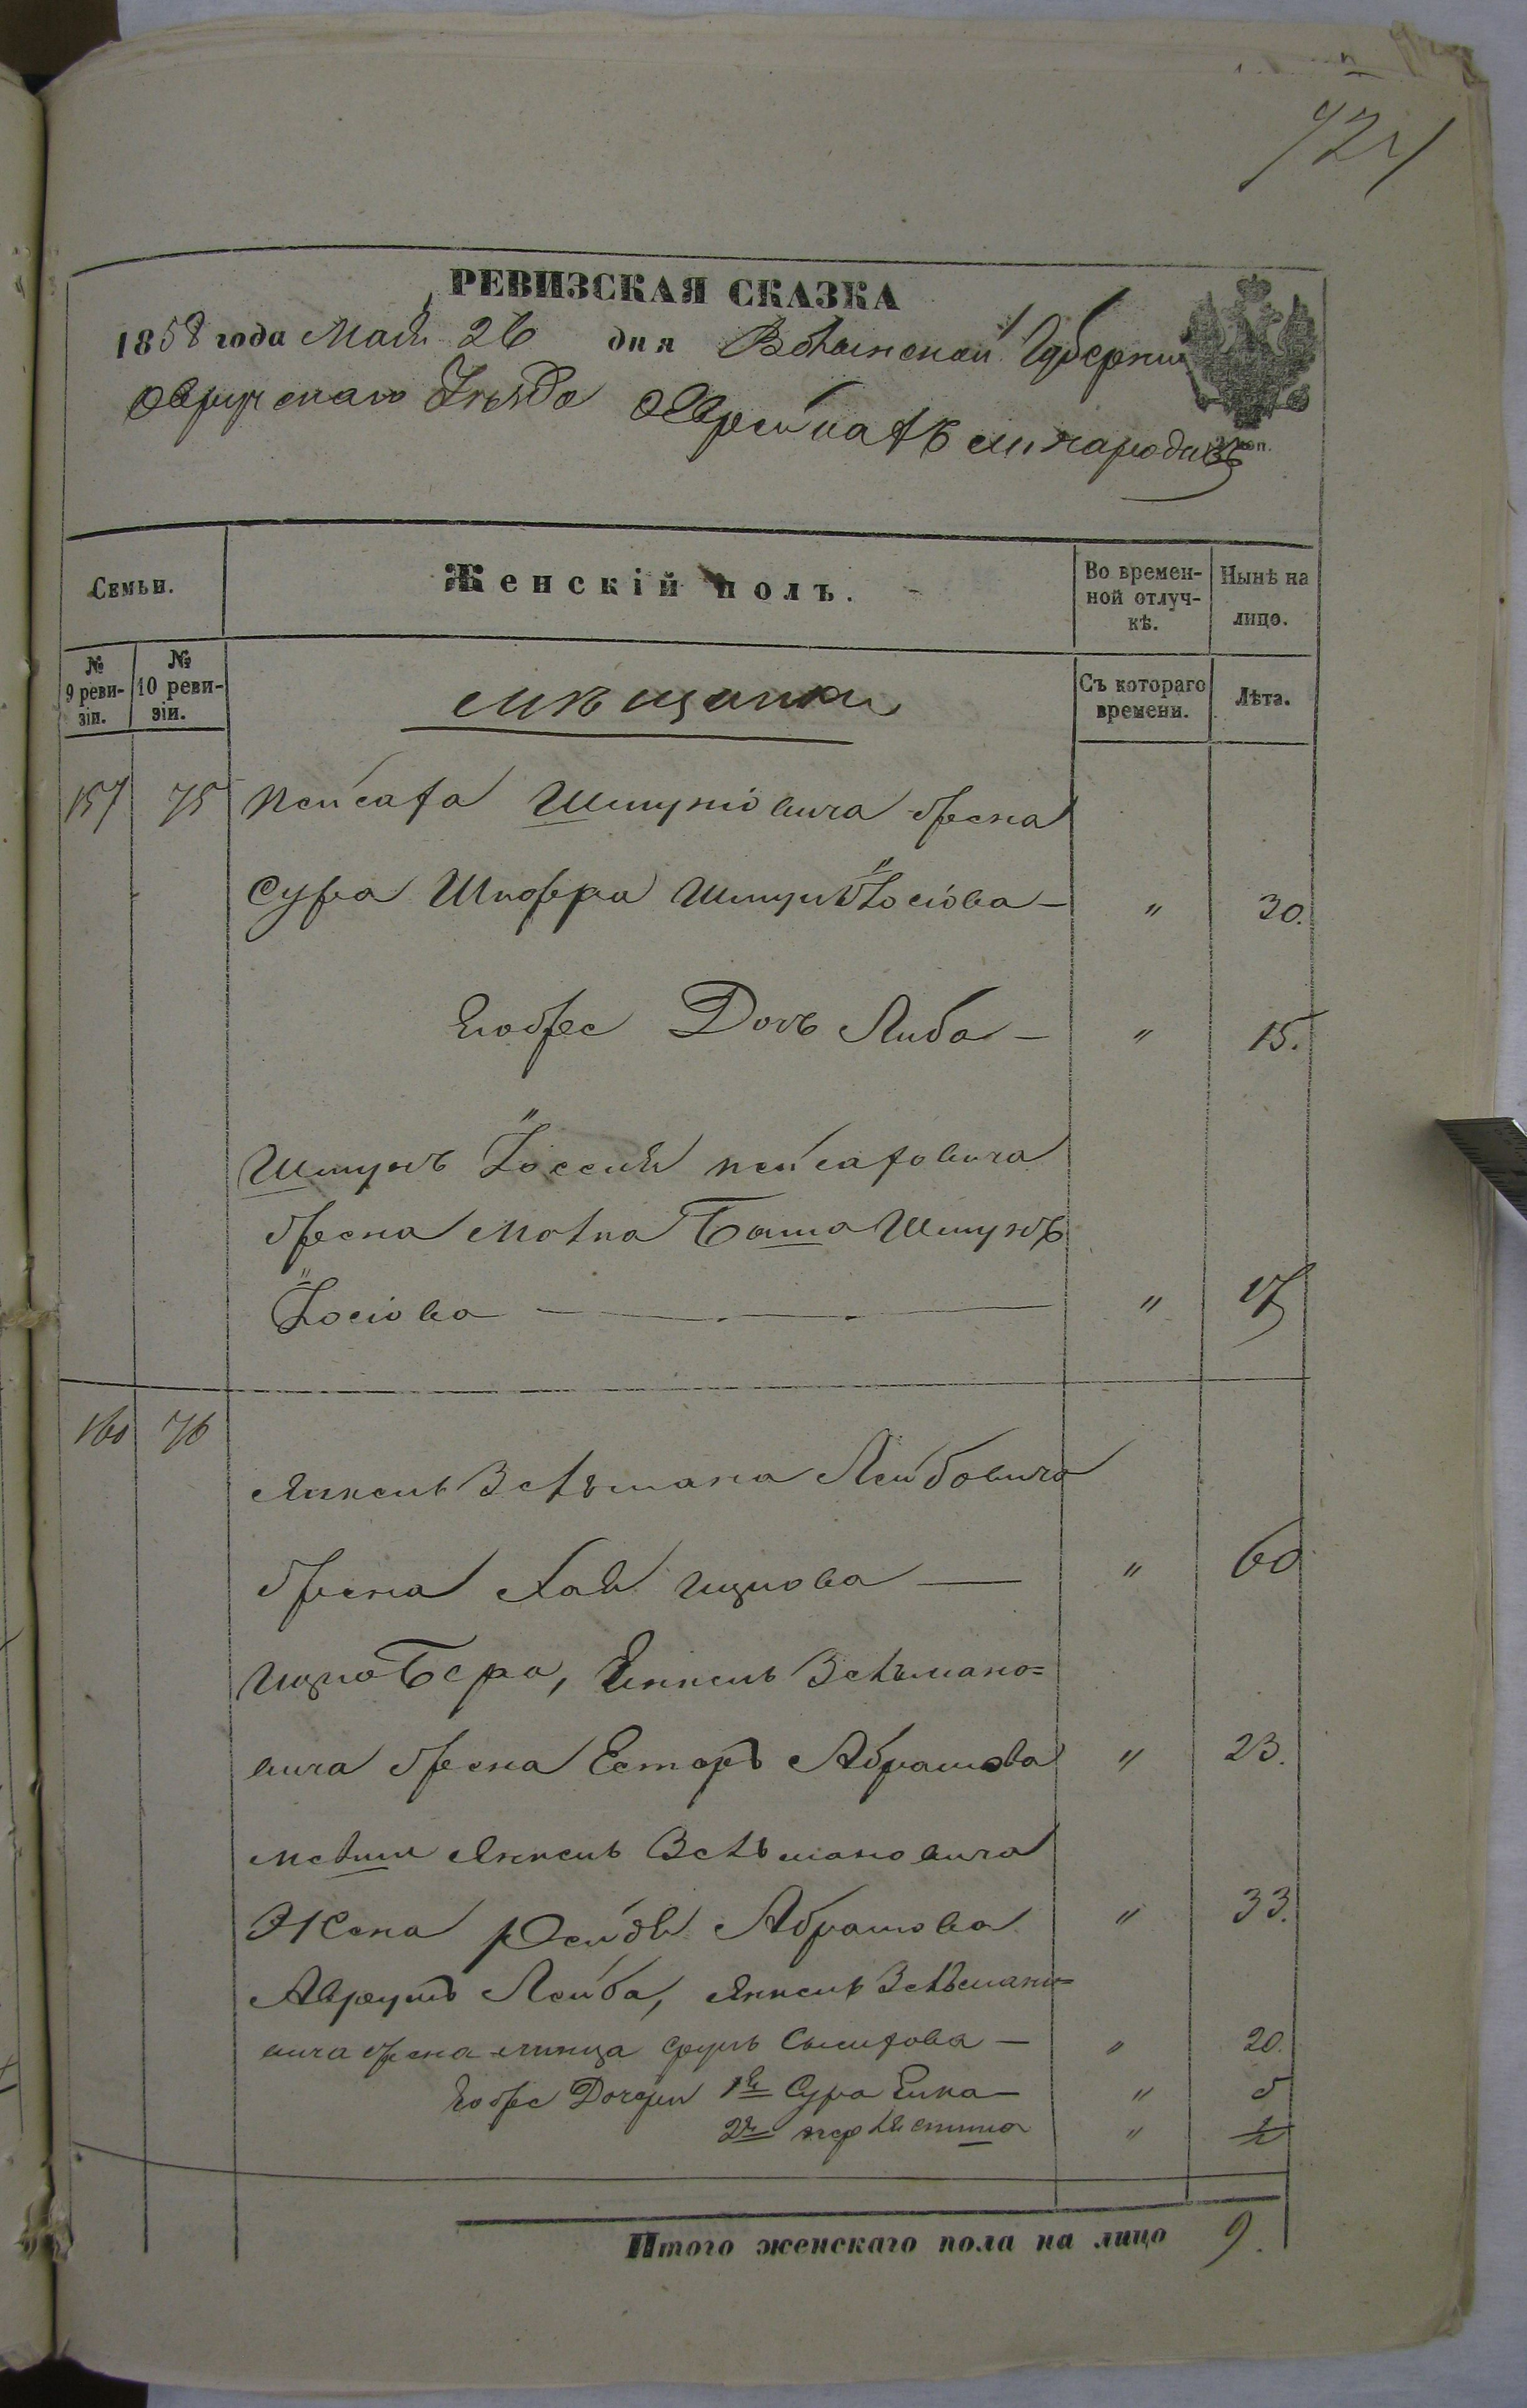 924
РЕВИЗСКАЯ СКАЗКА
1858 года Мая 26 дня Волынской Губерніи
Овручскаго Уезда
Семьи.
Женскій полъ.
Во времен-
ной отлуч-
кѣ.
Нынѣ на
лицо.
№
9 реви-
зіи.
№
10 реви-
зіи.
мѣщанки
Съ котораго
времени.
Лѣта.
157 75 Пейсаха Шмуліовича жена
Сура Шпофра Шмуль Іосіова — " 30.
Его же Дочь Либа — " 15.
Шмуль Іосся Пейсаховича
жена Малка Баша Шмуль
Іосіова — " 17
160 76
Янкель Зельмана Лейбовича
жена Хая Ицкова — " 60
Ицко Бера, Янкель Зельмано=
вича жена Естеръ Абрамова " 23.
Янкель Зельмановича
Жена Рейзя Абрамова " 33.
Аврумъ Лейба, Янкель Зельмано=
вича жена Сруль — " 20.
Его же Дочери 1я Сура Елка — " 5
2я " ½
Итого женскаго пола на лицо 9.